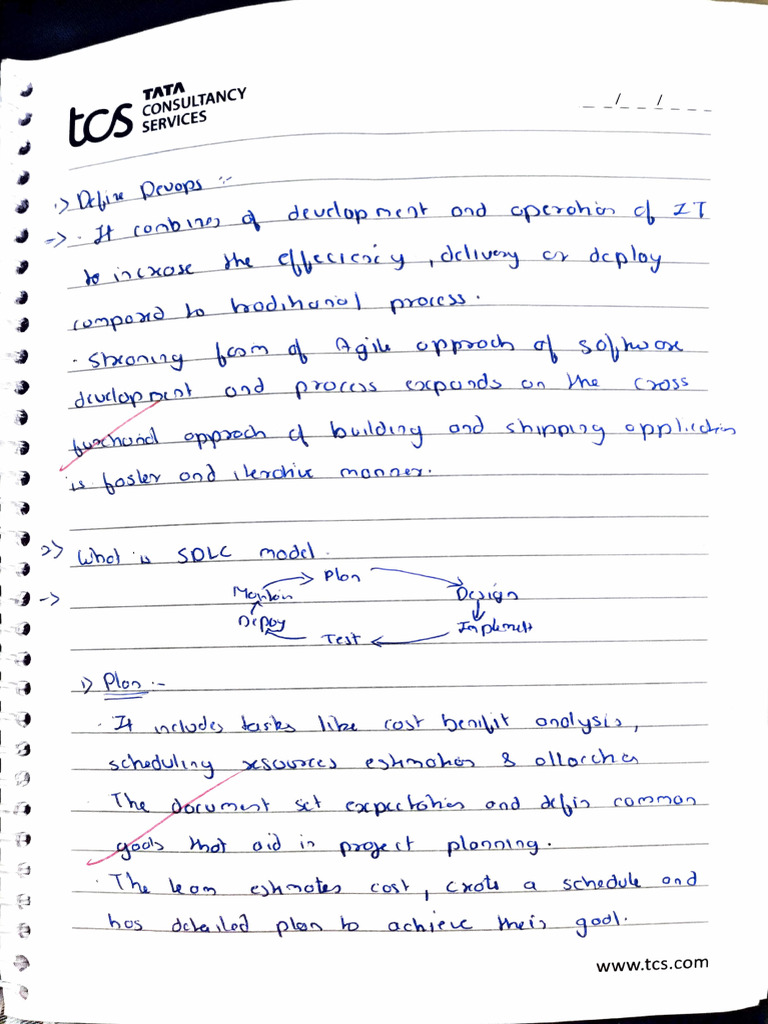 tcs TATA
CONSULTANCY
SERVICES
_ _ / _ / _ _ _
1) Define Devops :-
-> · It combines of development and operation of IT
to increase the effeciency, delivery or deploy
compared to traditional process.
· Streaming form of Agile approch of software
development and process expands on the cross
functional approch of building and shipping application
is faster and iterative manner.
2) What is SDLC model.
->
Plan
Maintain Design
Deploy Implement
Test
1) Plan :-
· It includes tasks like cost benifit analysis,
scheduling resources estimation & allocation
· The document set expectation and defin common
goals that aid in project planning.
· The team estimates cost, create a schedule and
has detailed plan to achieve their goal.
www.tcs.com